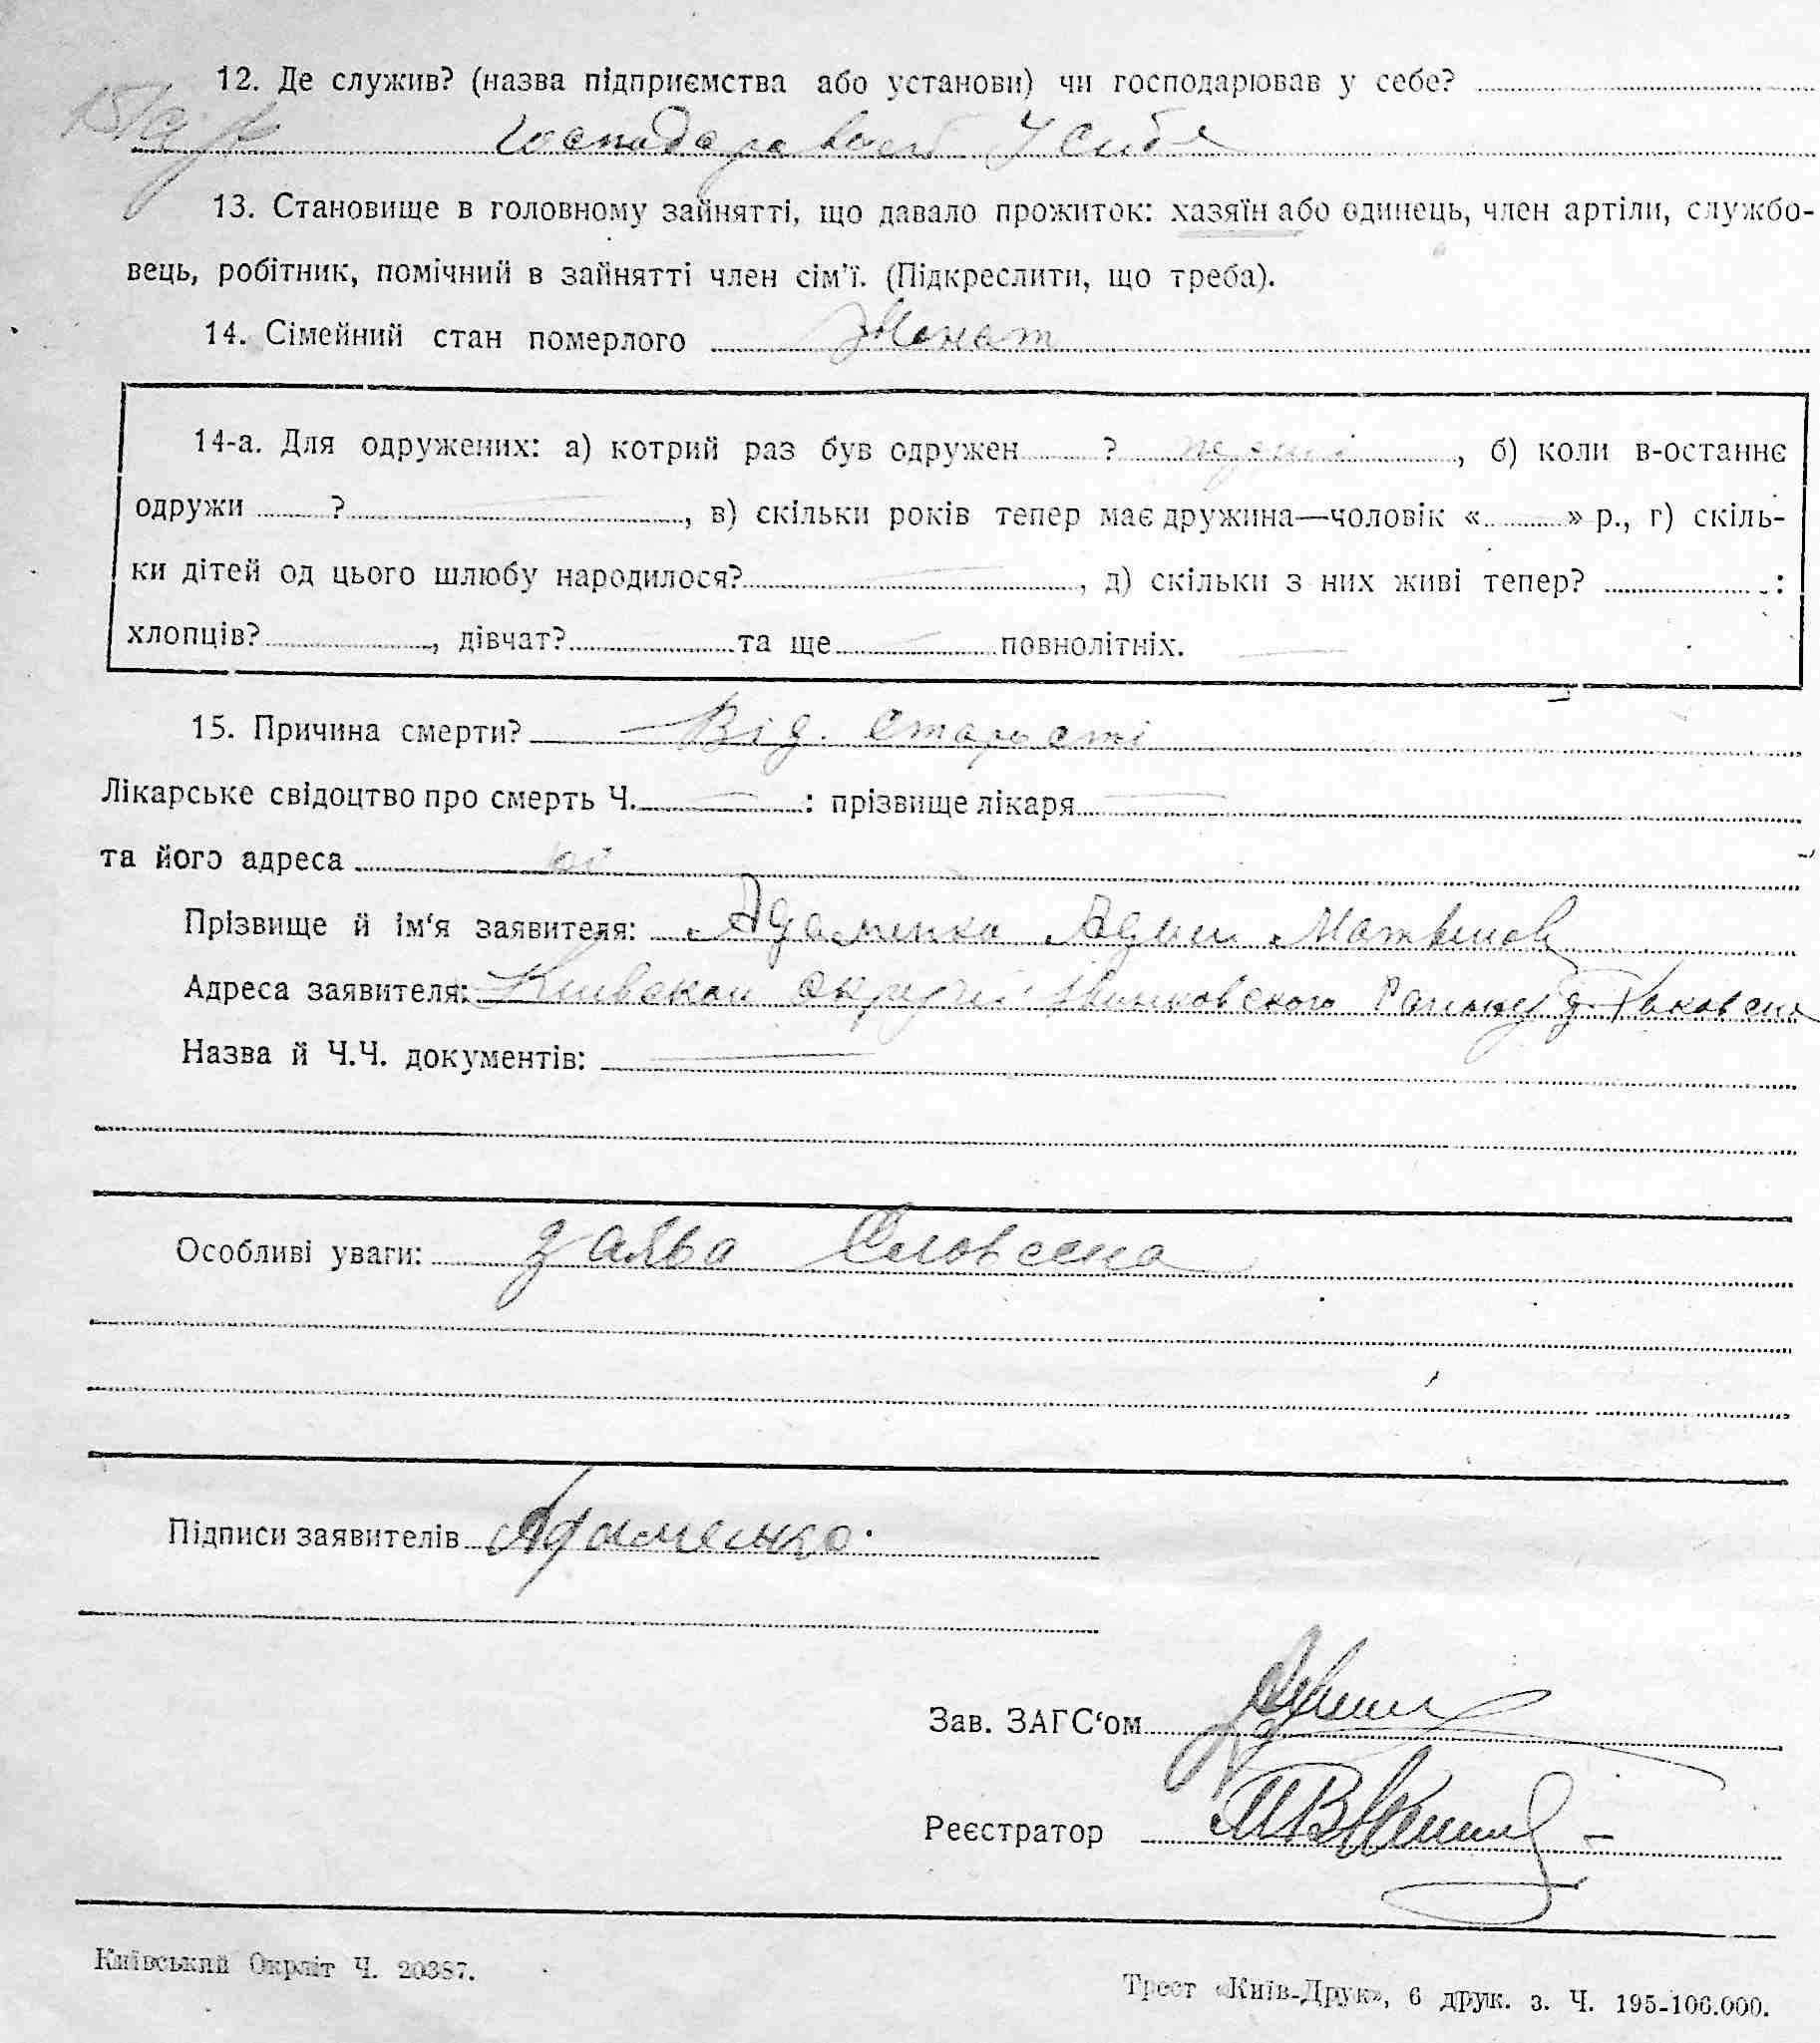 12. Де служив? (назва підприємства або установи) чи господарював у себе?
у себе
13. Становище в головному зайнятті, що давало прожиток: хазяїн або одинець, член артіли, службо-
вець, робітник, помічний в зайнятті член сім'ї. (Підкреслити, що треба).
14. Сімейний стан померлого Жонат
14-а. Для одружених: а) котрий раз був одружен ? , б) коли в-останнє
одружи ? , в) скільки років тепер має дружина—чоловік « » р., г) скіль-
ки дітей од цього шлюбу народилося? , д) скільки з них живі тепер? :
хлопців? , дівчат? та ще повнолітніх.
15. Причина смерти? Від старости
Лікарське свідоцтво про смерть Ч. : прізвище лікаря
та його адреса
Прізвище й ім'я заявителя: Адаменко
Адреса заявителя: Киевской
Назва й Ч.Ч. документів:
Особливі уваги: заява Словесна
Підписи заявителів Адаменко
Зав. ЗАГС'ом
Реєстратор
Київський Окрліт Ч. 20387.
Трест «Київ-Друк», 6 друк. з. Ч. 195-106.000.